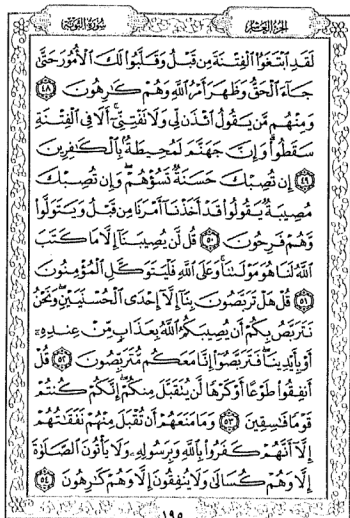 الجزء العاشر سورة التوبة
لَقَدِ ٱبۡتَغَوُاْ ٱلۡفِتۡنَةَ مِن قَبۡلُ وَقَلَّبُواْ لَكَ ٱلۡأُمُورَ حَتَّىٰ
جَآءَ ٱلۡحَقُّ وَظَهَرَ أَمۡرُ ٱللَّهِ وَهُمۡ كَٰرِهُونَ ٤٨
وَمِنۡهُم مَّن يَقُولُ ٱئۡذَن لِّي وَلَا تَفۡتِنِّيٓۚ أَلَا فِي ٱلۡفِتۡنَةِ
سَقَطُواْۗ وَإِنَّ جَهَنَّمَ لَمُحِيطَةُۢ بِٱلۡكَٰفِرِينَ
٤٩ إِن تُصِبۡكَ حَسَنَةٞ تَسُؤۡهُمۡۖ وَإِن تُصِبۡكَ
مُصِيبَةٞ يَقُولُواْ قَدۡ أَخَذۡنَآ أَمۡرَنَا مِن قَبۡلُ وَيَتَوَلَّواْ
وَّهُمۡ فَرِحُونَ ٥٠ قُل لَّن يُصِيبَنَآ إِلَّا مَا كَتَبَ
ٱللَّهُ لَنَا هُوَ مَوۡلَىٰنَاۚ وَعَلَى ٱللَّهِ فَلۡيَتَوَكَّلِ ٱلۡمُؤۡمِنُونَ
٥١ قُلۡ هَلۡ تَرَبَّصُونَ بِنَآ إِلَّآ إِحۡدَى ٱلۡحُسۡنَيَيۡنِۖ وَنَحۡنُ
نَتَرَبَّصُ بِكُمۡ أَن يُصِيبَكُمُ ٱللَّهُ بِعَذَابٖ مِّنۡ عِندِهِۦٓ
أَوۡ بِأَيۡدِينَاۖ فَتَرَبَّصُوٓاْ إِنَّا مَعَكُم مُّتَرَبِّصُونَ ٥٢ قُلۡ
أَنفِقُواْ طَوۡعًا أَوۡ كَرۡهٗا لَّن يُتَقَبَّلَ مِنكُمۡ إِنَّكُمۡ كُنتُمۡ
قَوۡمٗا فَٰسِقِينَ ٥٣ وَمَا مَنَعَهُمۡ أَن تُقۡبَلَ مِنۡهُمۡ نَفَقَٰتُهُمۡ
إِلَّآ أَنَّهُمۡ كَفَرُواْ بِٱللَّهِ وَبِرَسُولِهِۦ وَلَا يَأۡتُونَ ٱلصَّلَوٰةَ
إِلَّا وَهُمۡ كُسَالَىٰ وَلَا يُنفِقُونَ إِلَّا وَهُمۡ كَٰرِهُونَ ٥٤
١٩٥